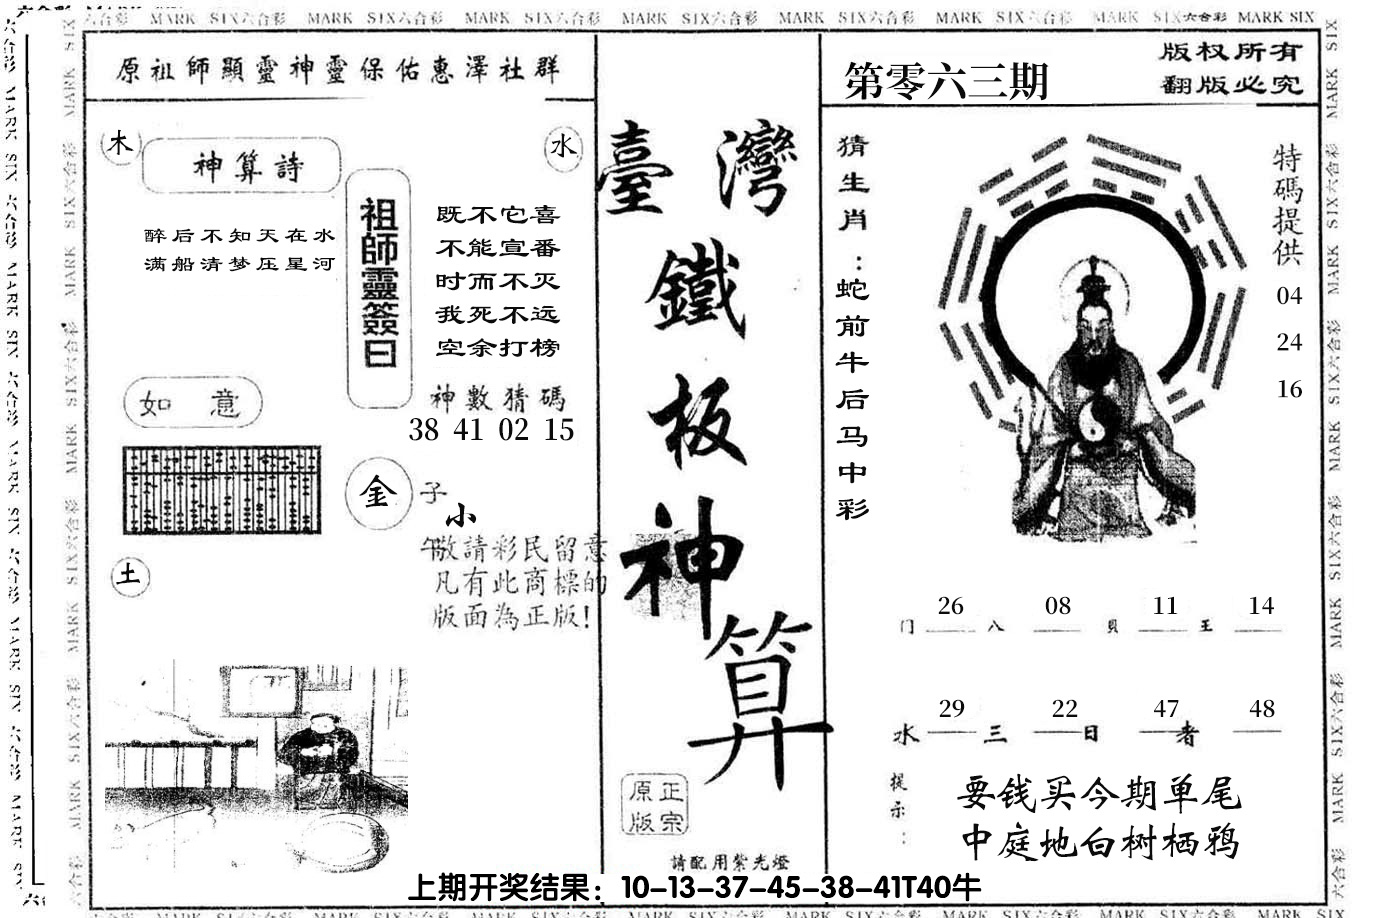 MARK SIX六合彩 MARK SIX六合彩 MARK SIX六合彩 MARK SIX六合彩 MARK SIX六合彩 MARK SIX六合彩 MARK SIX六合彩 MARK SIX
原祖師顯靈神靈保佑惠澤社群
木
神算詩
水
醉后不知天在水
满船清梦压星河
祖師靈簽曰
既不它喜
不能宣番
时而不灭
我死不远
空余打榜
神數猜碼
38 41 02 15
如意
金
子
小
午
敬請彩民留意
凡有此商標的
版面為正版!
土
臺灣
鐵
板
神
算
正宗
原版
請配用紫光燈
第零六三期
版权所有
翻版必究
猜生肖:蛇前牛后马中彩
特碼提供
04
24
16
26 08 11 14
门 八 貝 王
29 22 47 48
水 三 日 者
提示:
要钱买今期单尾
中庭地白树栖鸦
上期开奖结果：10-13-37-45-38-41T40牛